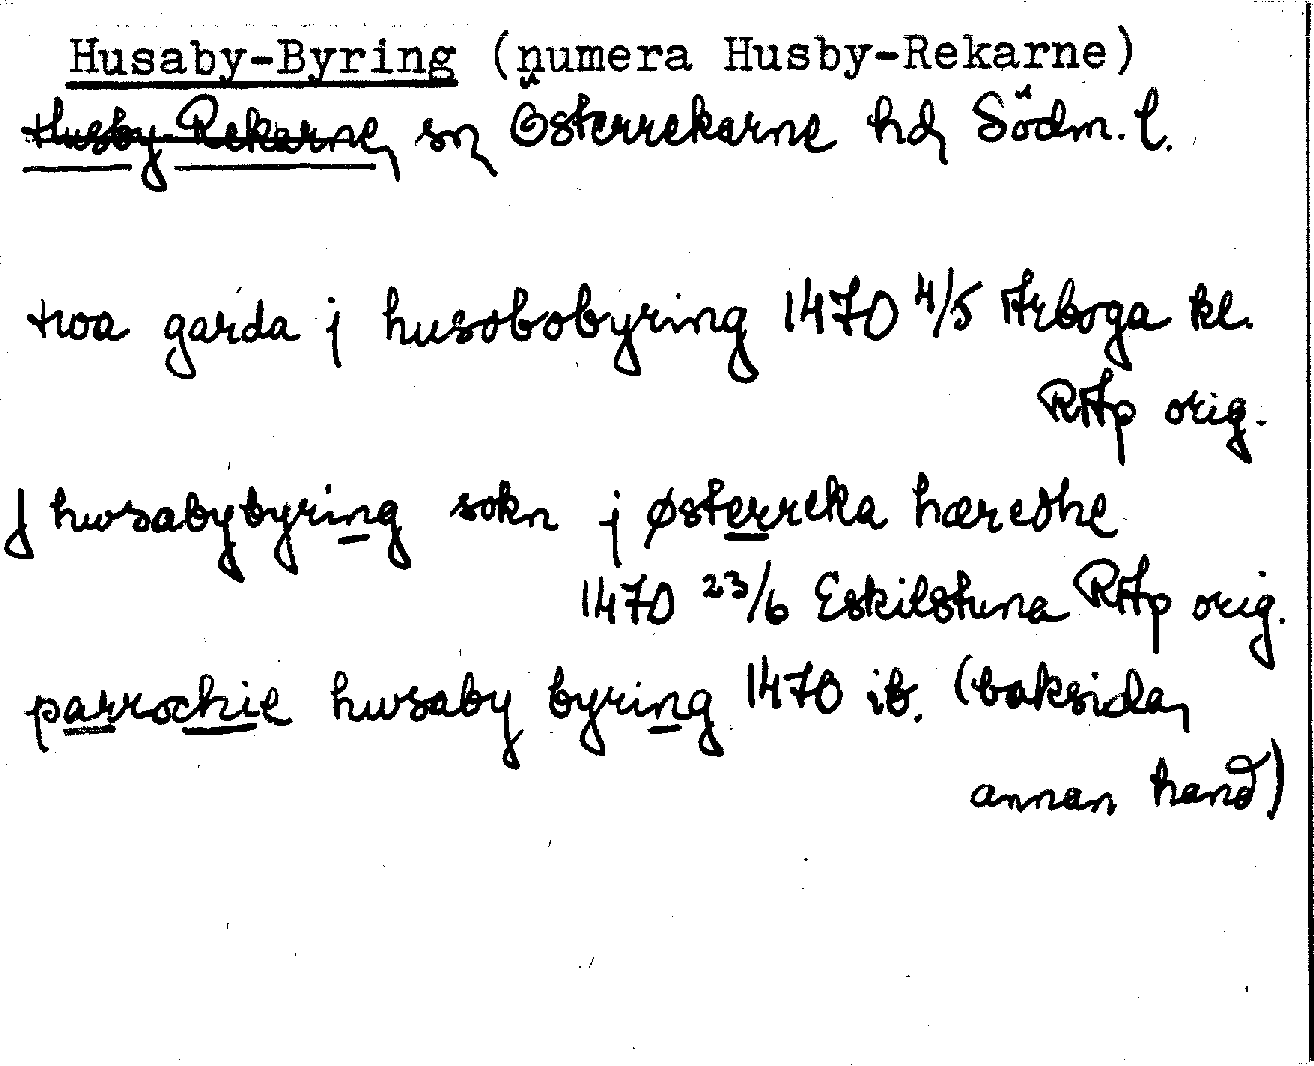 Husaby-Byring (numera Husby-Rekarne)
Husby-Rekarne, sn, Österrekarne hd, Södm. l.
twa garda j husobobyring 1470 4/5 Arboga kl.
RAp orig.
J husabybyring sokn j østerreka hæredhe
1470 23/6 Eskilstuna RAp orig.
parrochie husaby byring 1470 ib. (baksidan,
annan hand)